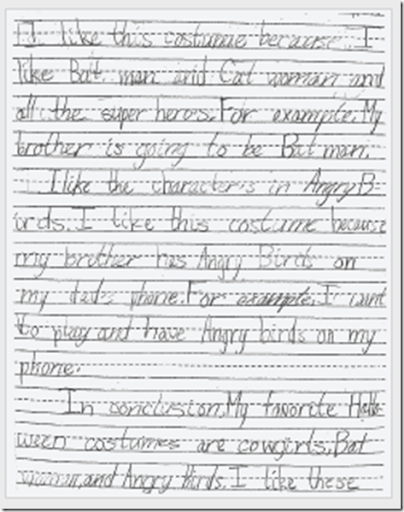 I like this costumae because I
like Bat man and Cat woman and
all the super hero's. For example, My
brother is going to be Bat man.
I like the character's in Angry B-
irds. I like this costume because
my brother has Angry Birds on
my dad's phone. For example, I want
to play and have Angry birds on my
phone.
In conclusion, My favorite Hallo-
ween costumes are cowgirls, Bat
woman, and Angry Birds. I like these